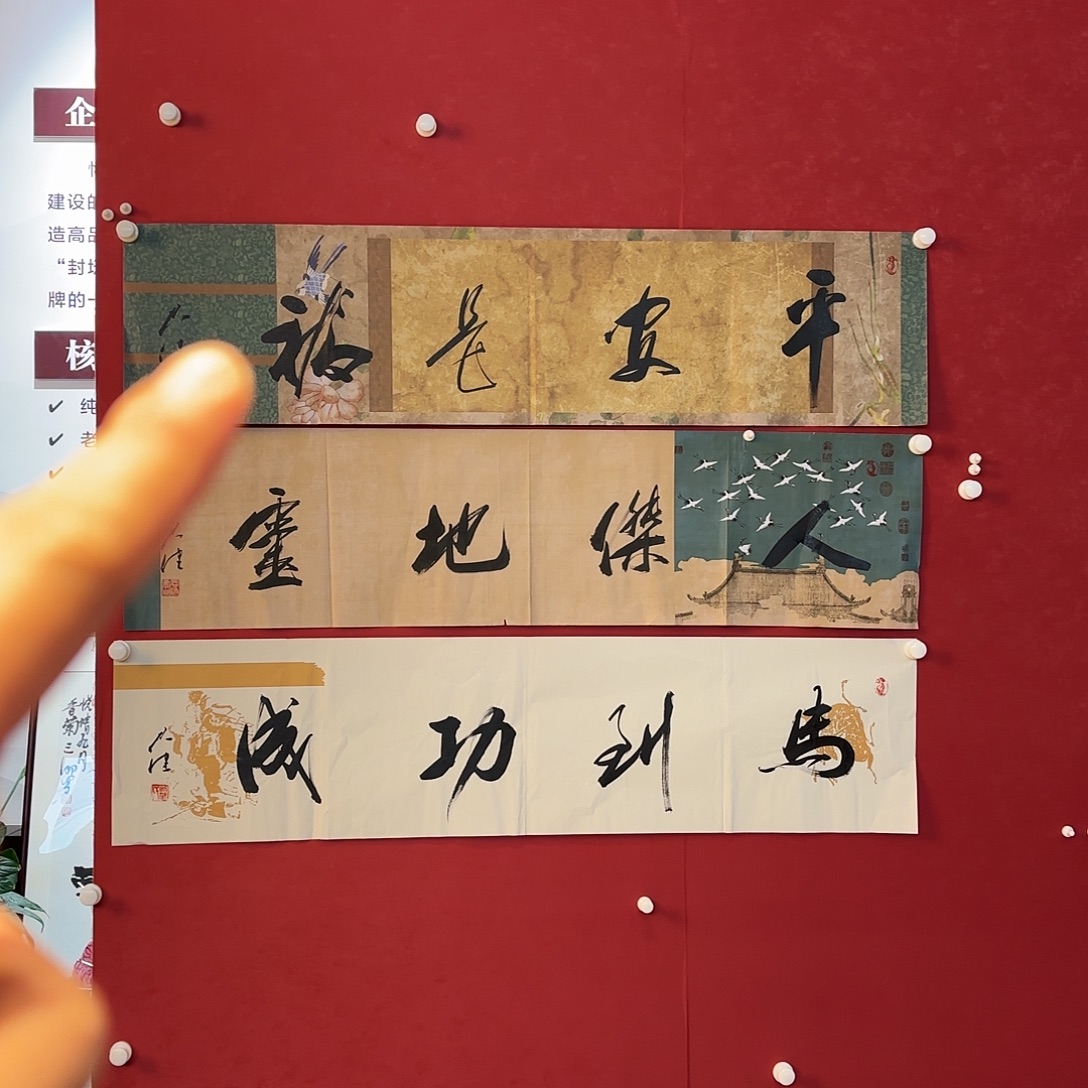 企
建设的
造高品
“封
牌的一
核
✓ 纯
✓ 老
平安是福
人傑地靈
馬到功成